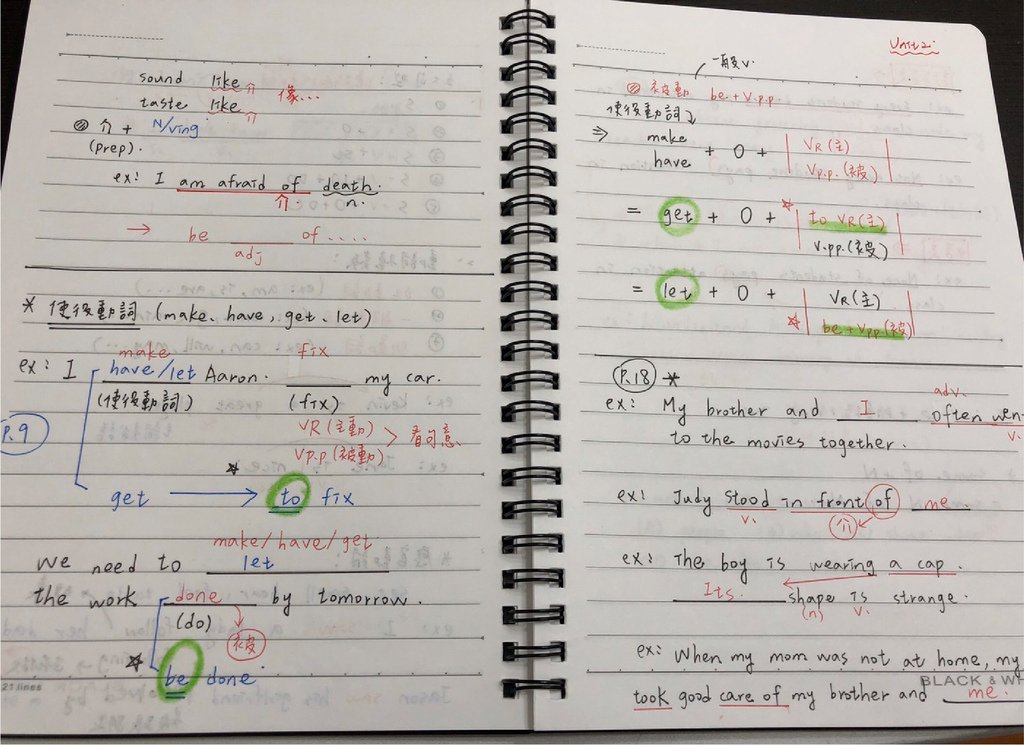 sound like 介 像...
taste like 介
◎ 介 + N/Ving
(prep).
ex: I am afraid of death.
介. n.
→ be ____ of ....
adj
* 使役動詞 (make、have, get、let)
make fix
ex: I have/let Aaron. ____ my car.
(使役動詞) (fix)
P.9
VR (主動)
Vp.p (被動) > 看句意
get → to fix
make/have/get
we need to let
the work done by tomorrow.
(do) 被
be done
21 lines
Unit 2.
一般V.
◎ 被動 be + V.p.p.
使役動詞
⇒ make + O + VR (主)
have V.p.p. (被)
= get + O + * to VR (主)
V.pp. (被)
= let + O + VR (主)
* be + Vpp (被)
P.18 *
adv.
ex: My brother and I often wen
v.
to the movies together.
ex: Judy stood in front of me.
v. 介
ex: The boy is wearing a cap.
Its shape is strange.
(n) v.
ex: When my mom was not at home, my
BLACK & WH
took good care of my brother and me.